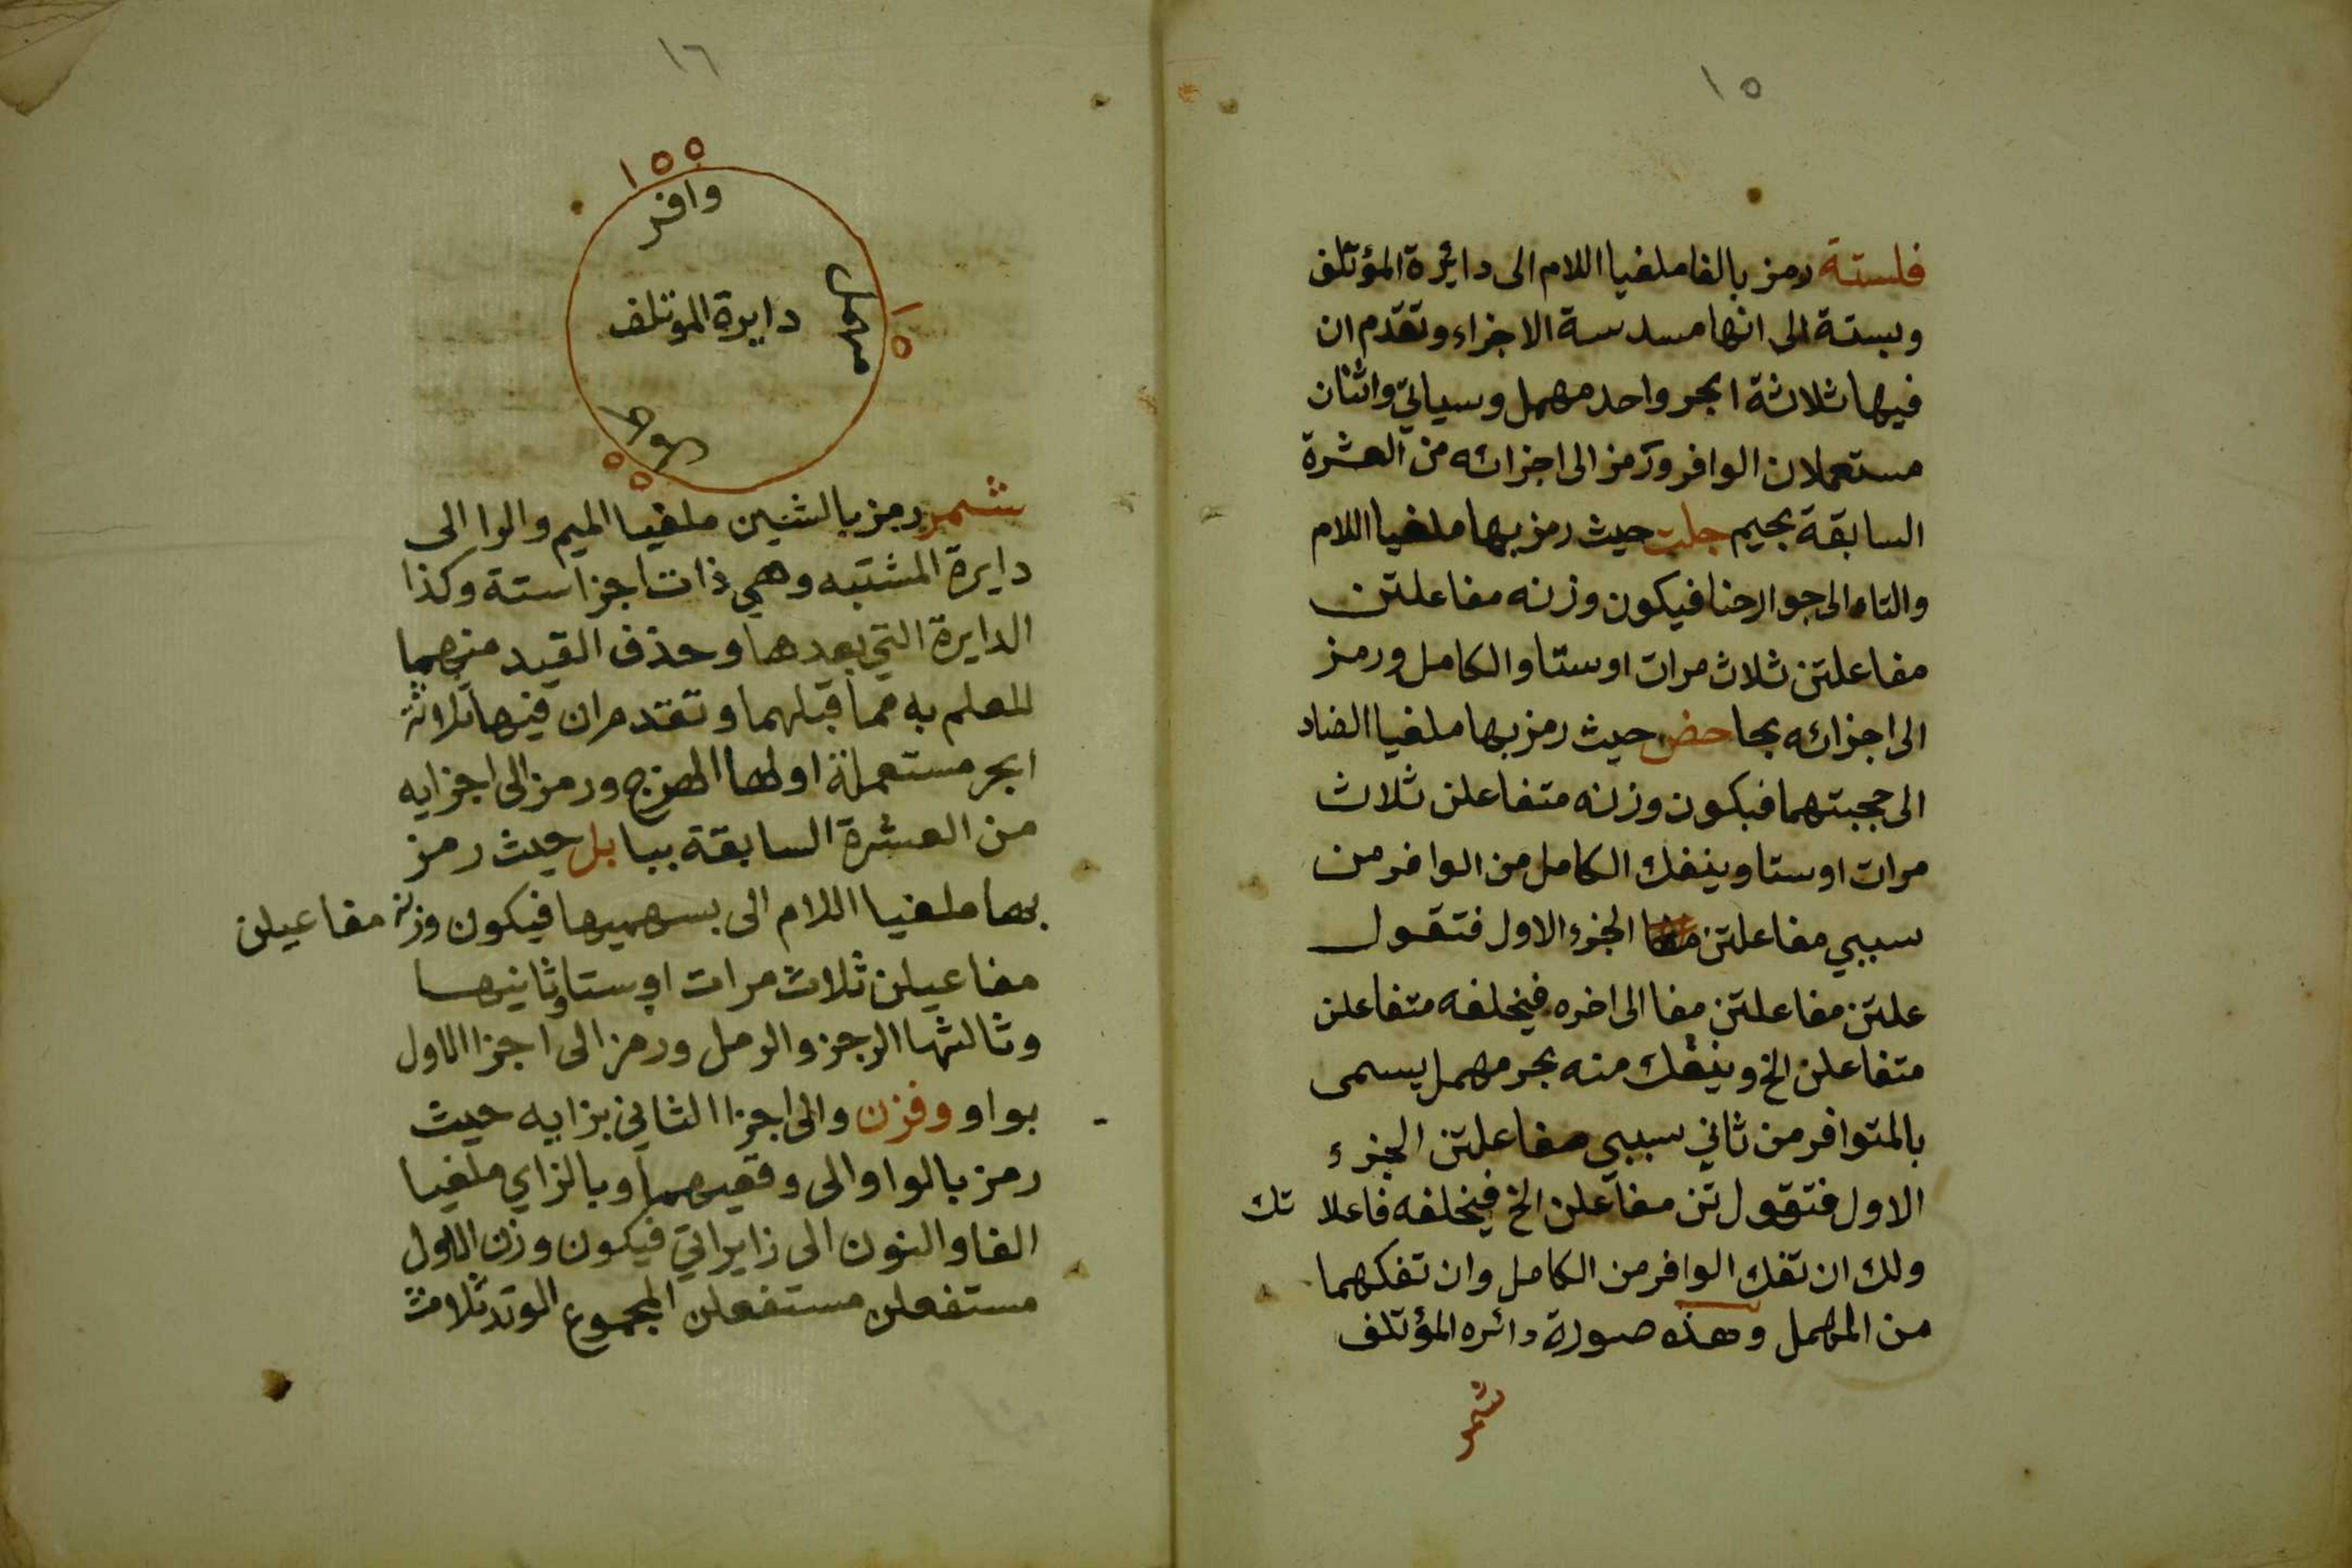 ١٥
فلستة رمز بالفا ملغيا اللام الى دائرة المؤتلف
وبستة الى انها مسدسة الاجزاء وتقدم ان
فيها ثلاثة ابحر واحد مهمل وسياتي واثنان
مستعملان الوافر ورمز الى اجزائه من العشرة
السابقة بجيم جلت حيث رمز بها ملغيا اللام
والتاء الى جوارحنا فيكون وزنه مفاعلتن
مفاعلتن ثلاث مرات او ستا والكامل ورمز
الى اجزائه بحا حض حيث رمز بها ملغيا الضاد
الى حجبتهما فيكون وزنه متفاعلن ثلاث
مرات او ستا وينفك الكامل من الوافر من
سببي مفاعلتن الجزء الاول فتقول
علتن مفاعلتن مفا الى اخره فيخلفه متفاعلن
متفاعلن الخ وينفك منه بحر مهمل يسمى
بالمتوافر من ثاني سببي مفاعلتن الجزء
الاول فتقول تن مفاعلن الخ فيخلفه فاعلا تك
ولك ان تفك الوافر من الكامل وان تفكهما
من المهمل وهذه صورة دائره المؤتلف
شمر
١٦
١٥٥
وافر
دايرة الموتلف
١٥
٥٥
شمر رمز بالشين ملغيا الميم والرا الى
دايرة المشتبه وهي ذات اجزا ستة وكذا
الدايرة التي بعدها وحذف القيد منهما
للعلم به مما قبلهما وتقدم ان فيها ثلاثة
ابحر مستعملة اولها الهزج ورمز الى اجزايه
من العشرة السابقة ببا بل حيث رمز
بها ملغيا اللام الى بسهميها فيكون وزنه مفاعيلن
مفاعيلن ثلاث مرات او ستا وثانيها
وثالثها الرجز والرمل ورمز الى اجزا الاول
بواو وفزن والى اجزا الثاني بزايه حيث
رمز بالواو الى وقعيهما وبالزاي ملغيا
الفا والنون الى زايراتي فيكون وزن الاول
مستفعلن مستفعلن المجموع الوتد ثلاث